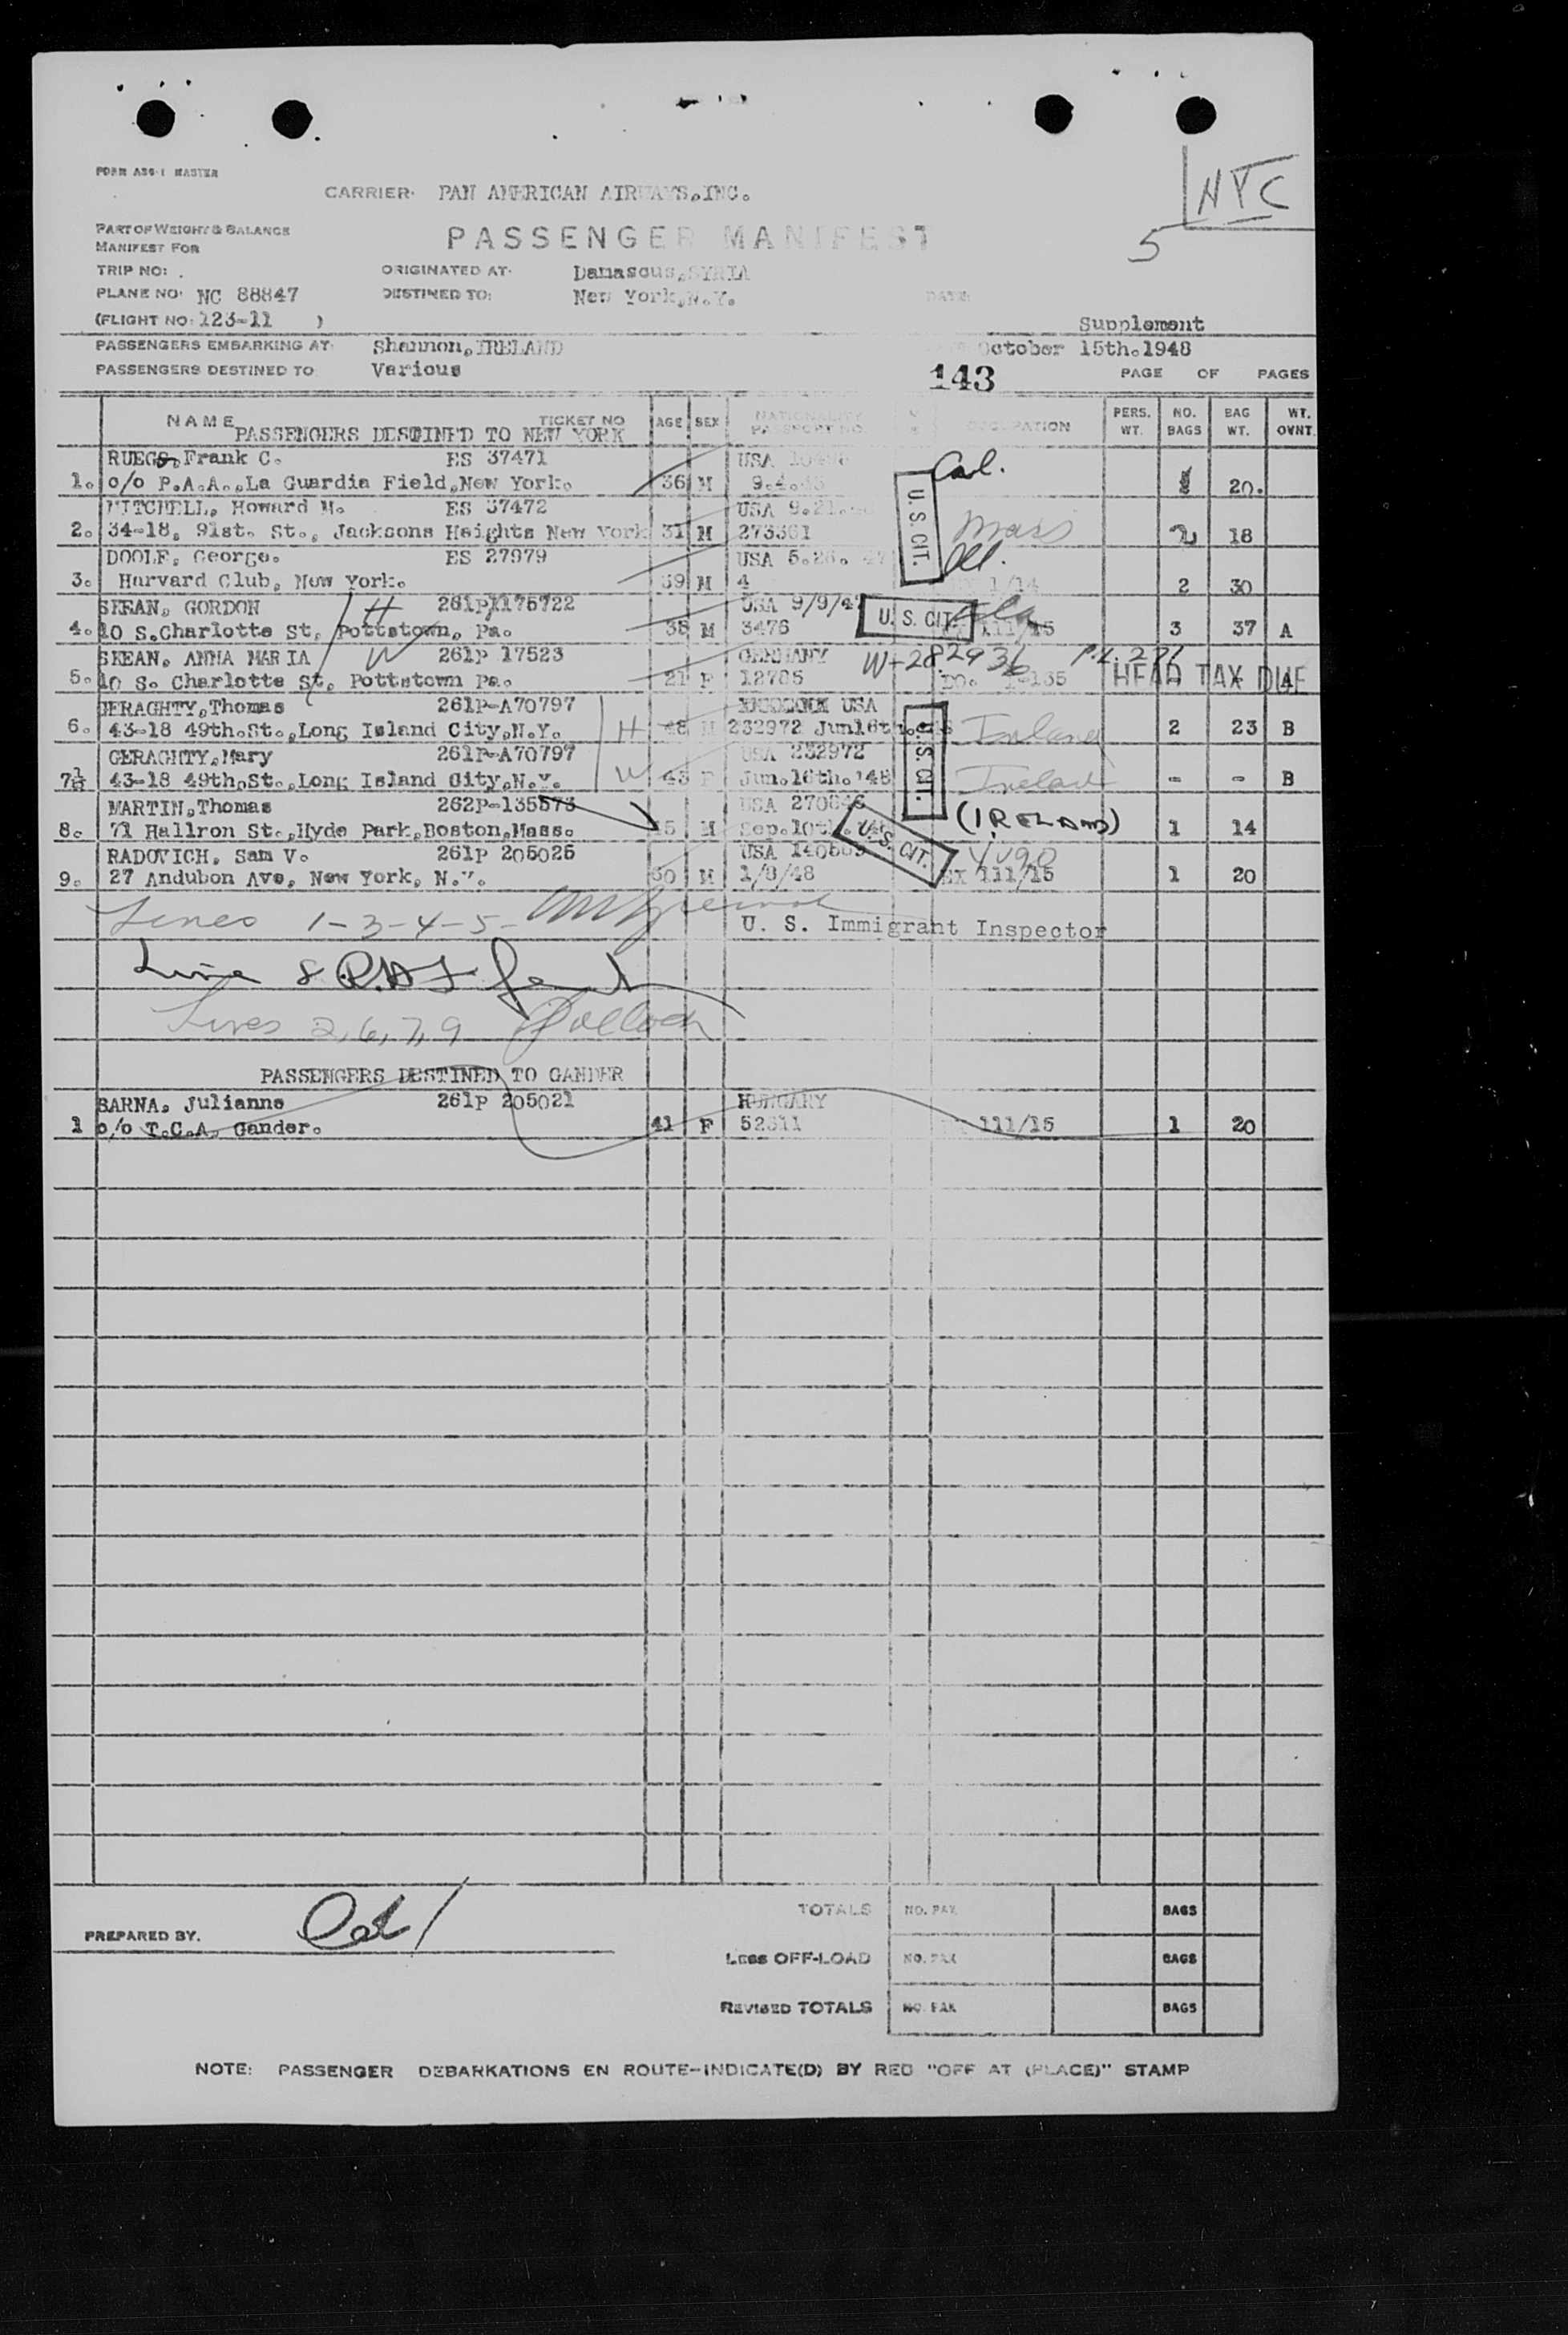 FORM ASG-1 MASTER
CARRIER: PAN AMERICAN AIRWAYS, INC.
NYC
5
PART OF WEIGHT & BALANCE
MANIFEST FOR
PASSENGER MANIFEST
TRIP NO:
ORIGINATED AT: Damascus, SYRIA
PLANE NO: NC 88847
DESTINED TO: New York, N.Y.
DATE:
(FLIGHT NO: 123-11 )
Supplement
PASSENGERS EMBARKING AT: Shannon, IRELAND
October 15th. 1948
PASSENGERS DESTINED TO Various
143
PAGE OF PAGES
NAME TICKET NO AGE SEX NATIONALITY PASSPORT NO. OCCUPATION PERS. WT. NO. BAGS BAG WT. WT. OVNT.
PASSENGERS DESTINED TO NEW YORK
Frank C. ES 37471 USA Cal.
1. c/o P.A.A., La Guardia Field, New York. 36 M 20.
MITCHELL, Howard M. ES 37472 USA
2. 34-18, 91st. St., Jacksons Heights New York 31 M 273361 Mass 2 18
U. S. CIT.
DOOLE, George. ES 27979 USA
3. Harvard Club, New York. 39 M 4 2 30
SKEAN, GORDON H USA 9/9/47
4. 10 S. Charlotte St, Pottstown, Pa. M 3476 U. S. CIT. 3 37 A
SKEAN, ANNA MARIA W 261P 17523 GERMANY W-282936 P.L. 271
5. 10 S. Charlotte St, Pottstown Pa. 21 F HEAD TAX DUE
GERAGHTY, Thomas 261P-A70797 XXXXXXX USA
6. 43-18 49th. St., Long Island City, N.Y. H 48 M 232972 Jun 16th. Ireland 2 23 B
U. S. CIT.
GERAGHTY, Mary 261P-A70797 USA 232972
7 43-18 49th. St., Long Island City, N.Y. W 43 F Jun. 16th. '48 Ireland - - B
MARTIN, Thomas 262P-135573 USA
8. 71 Hallron St., Hyde Park, Boston, Mass. M Sep. 10th. (IRELAND) 1 14
U. S. CIT.
RADOVICH, Sam V. 261P 205025 USA Yugo
9. 27 Andubon Ave, New York, N.Y. M 1/8/48 111/15 1 20
Lines 1-3-4-5-
U. S. Immigrant Inspector
Line 8
Lines 2, 6, 7, 9
PASSENGERS DESTINED TO GANDER
BARNA, Julianne 261P 205021 HUNGARY
1 c/o T.C.A. Gander. 41 F 111/15 1 20
TOTALS NO. PAX BAGS
PREPARED BY.
LESS OFF-LOAD NO. PAX BAGS
REVISED TOTALS NO. PAX BAGS
NOTE: PASSENGER DEBARKATIONS EN ROUTE-INDICATE(D) BY RED "OFF AT (PLACE)" STAMP